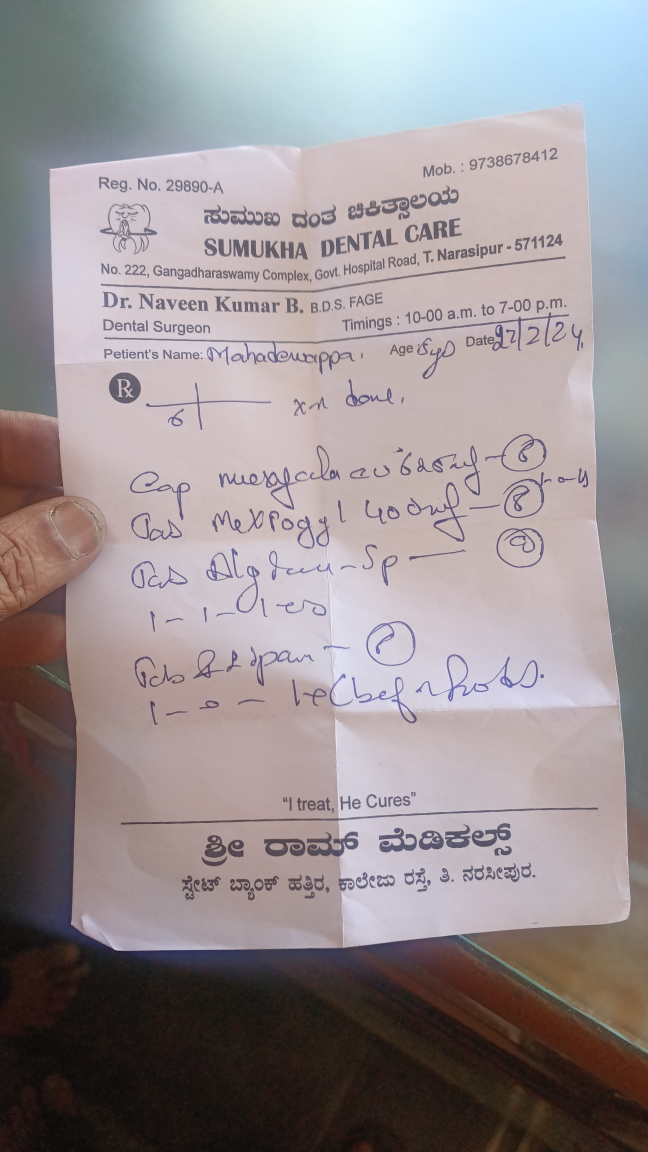 Reg. No. 29890-A
Mob. : 9738678412
ಸುಮುಖ ದಂತ ಚಿಕಿತ್ಸಾಲಯ
SUMUKHA DENTAL CARE
No. 222, Gangadharaswamy Complex, Govt. Hospital Road, T. Narasipur - 571124
Dr. Naveen Kumar B. B.D.S. FAGE
Dental Surgeon
Timings : 10-00 a.m. to 7-00 p.m.
Petient's Name: Mahadevappa. Age Date 27/2/24
Rx
6 done.
Cap 625mg - 8
Tab Metrogyl 400mg - 8
Tab - Sp -
1 - 1 - 1
Tab -
1 - 0 - 1
"I treat, He Cures"
ಶ್ರೀ ರಾಮ್ ಮೆಡಿಕಲ್ಸ್
ಸ್ಟೇಟ್ ಬ್ಯಾಂಕ್ ಹತ್ತಿರ, ಕಾಲೇಜು ರಸ್ತೆ, ತಿ. ನರಸೀಪುರ.